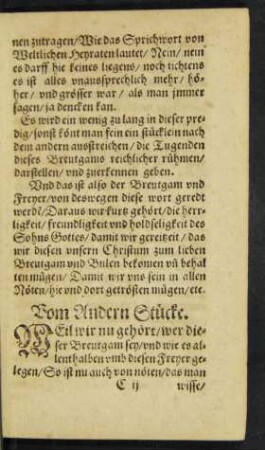 nen zutragen/ Wie das Sprichwort von
Weltlichen Heyraten lautet/ Nein/ nein
es darff hie keines liegens/ noch tichtens
es ist alles vnaussprechlich mehr/ hö-
her/ vnd grösser war/ als man jmmer
sagen/ ja dencken kan.
Es wird ein wenig zu lang in dieser pre-
dig/ sonst könt man fein ein stücklein nach
dem andern ausstreichen/ die Tugenden
dieses Breutgams reichlicher rühmen/
darstellen/ vnd zuerkennen geben.
Vnd das ist also der Breutgam vnd
Freyer/ von deswegen diese wort geredt
werdē/ Daraus wir kurtz gehört/ die herr-
ligkeit/ freundligkeit vnd holdseligkeit des
Sohns Gottes/ damit wir gereitzet/ das
wir diesen vnsern Christum zum lieben
Breutgam vnd Bulen bekomen vñ behal
ten mügen/ Damit wir vns sein in allen
Nöten/ hie vnd dort getrösten mügen/ etc.
Vom Andern Stücke.
WEil wir nu gehört/ wer die-
ser Breutgam sey/ vnd wie es al-
lenthalben vmb diesen Freyer ge-
legen/ So ist nu auch von nöten/ das man
C ij wisse/